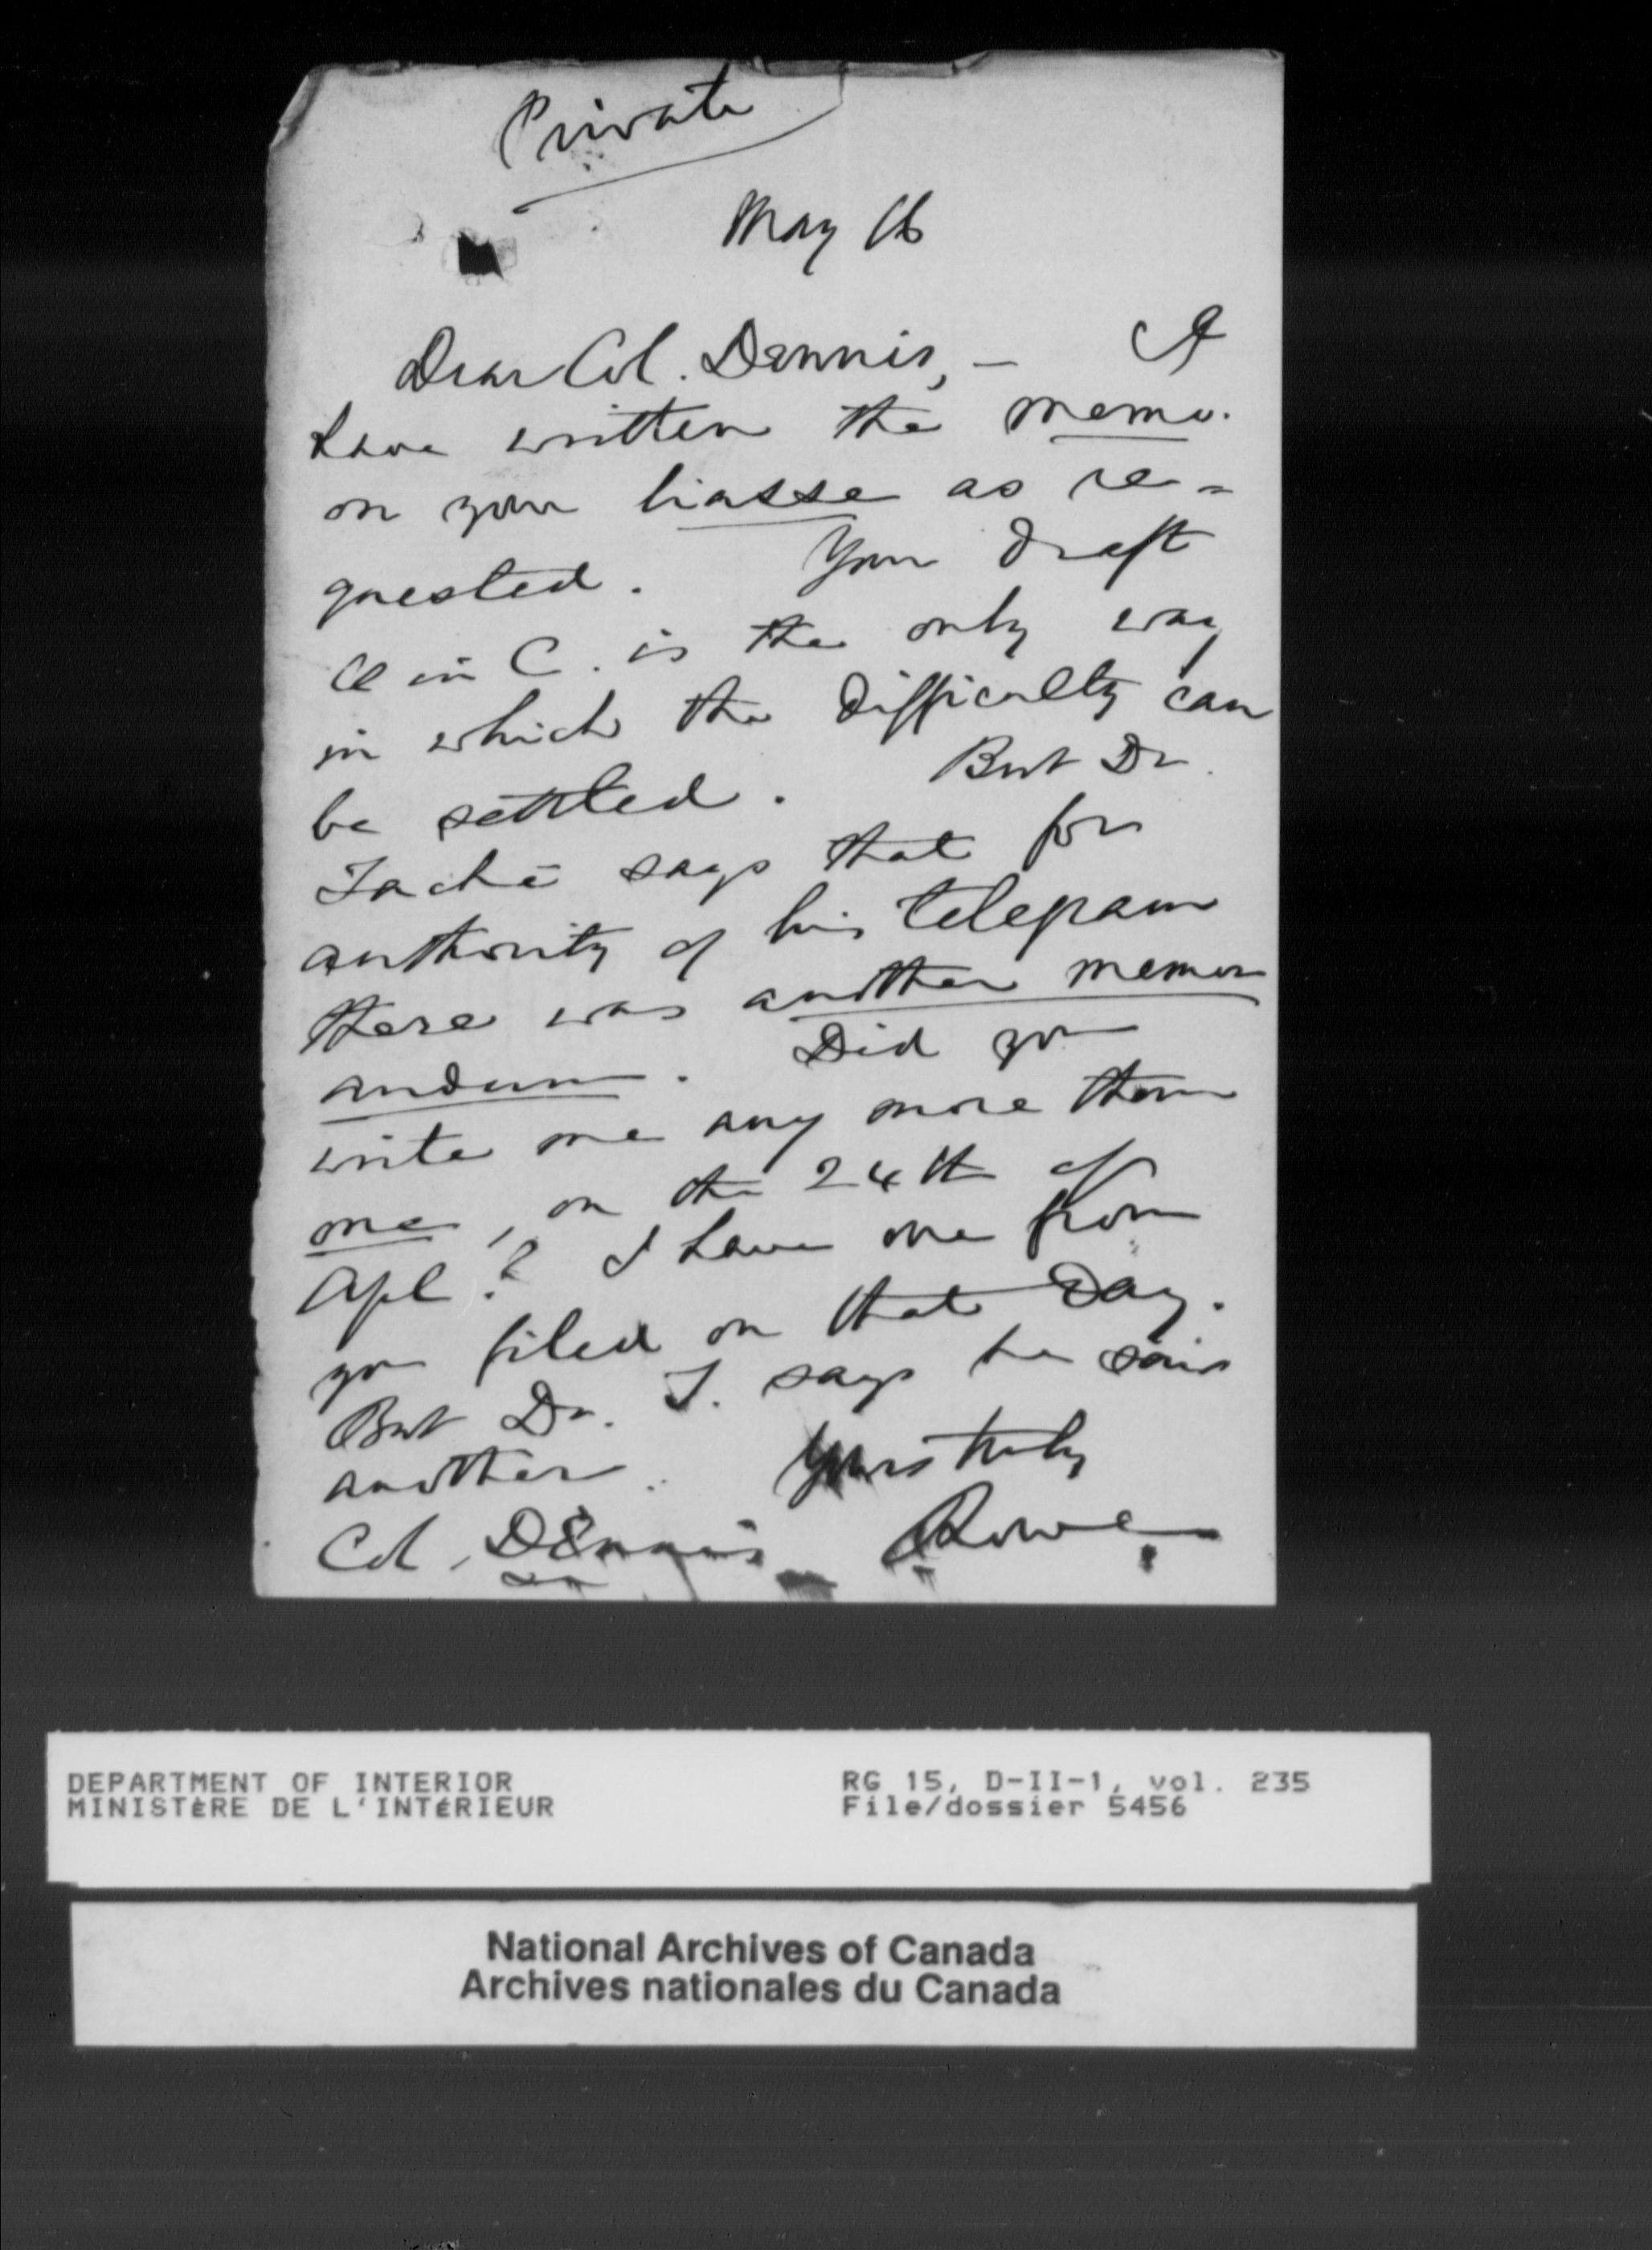 Private
May 16
Dear Col. Dennis, — I
have written the memo.
on your liasse as re-
quested. Your draft
O in C. is the only way
in which the difficulty can
be settled. But Dr.
Taché says that for
authority of his telegram
there was another memor
andum. Did you
write me any more than
one, on the 24th of
Apl? I have one from
you filed on that day.
But Dr. T. says he saw
another. Yours truly
Col. Dennis
DEPARTMENT OF INTERIOR
MINISTÈRE DE L'INTÉRIEUR
RG 15, D-II-1, vol. 235
File/dossier 5456
National Archives of Canada
Archives nationales du Canada